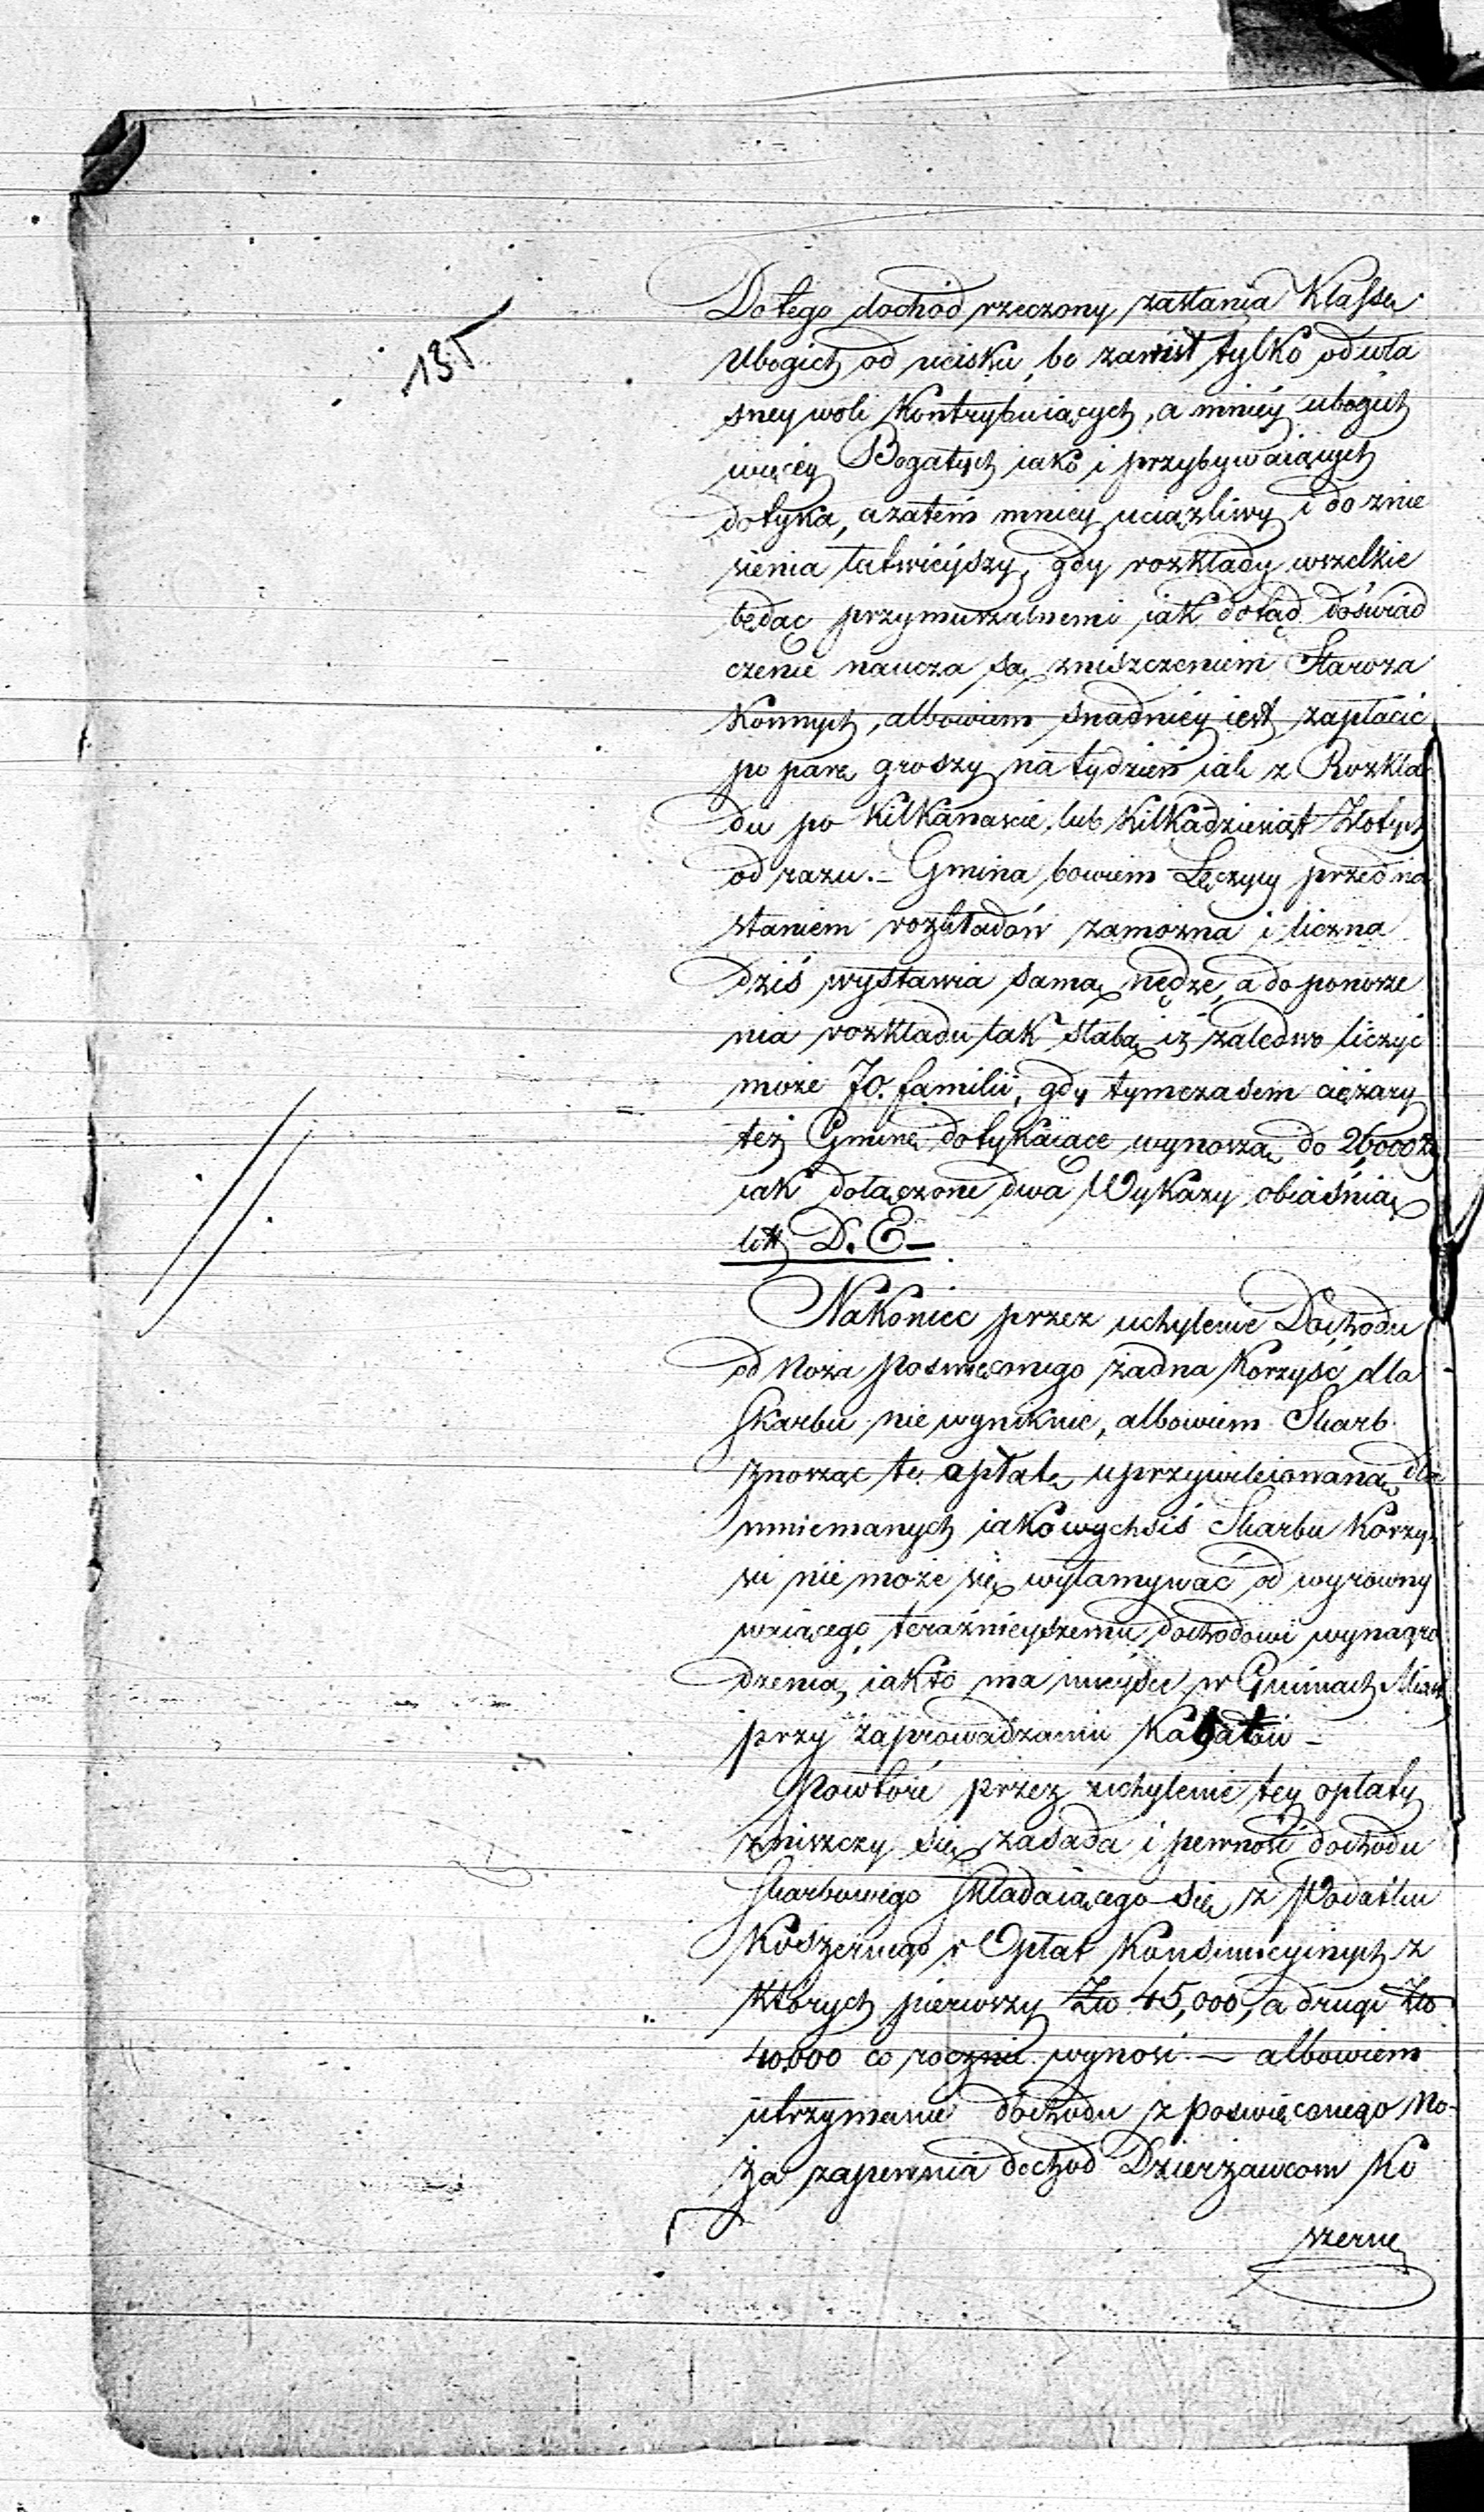 135
Do tego dochod rzeczony zasłania Klassę
Ubogich od ucisku, bo zawisł tylko od wła
sney woli Kontrybuiących, a mniéy ubogich
więcéy Bogatych iako i przybywaiących
dotyka, a zatém mniéy uciążliwy i do znie
sienia łatwiéyszy, gdy rozkłady wszelkie
będąc przymuszalnemi iak dotąd doświad
czenie naucza są zniszczeniem Staroza
Konnych, albowiem snadniéy iest zapłacić
po parę groszy na tydzień iak z Rozkła
du po Kilkanaście, lub Kilkadziesiąt Złotych
od razu.– Gmina bowiem Łęczycy przed na
staniem rozkładów zamożna i liczna
dziś wystawia samą nędzę, a do ponosze
nia rozkładu tak słabą iż zaledwo liczyć
może 70. familii, gdy tymczasem ciężary
też Gminę dotykaiące wynoszą do 26000 zł
iak dołączone dwa Wykazy obiaśniaią
litt D. E –
Nakoniec przez uchylenie Dochodu
od Noża poswięconego żadna Korzyść dla
Skarbu nie wyniknie, albowiem Skarb
znosząc tę opłatę uprzywileiowaną dla
mniemanych iakowychsiś Skarbu Korzy
ści nie może się wyłamywać od wyrówny
waiącego teraźnieyszemu dochodowi wynagro
dzenia, iak to ma mieysce w Gminach Miast
przy zaprowadzeniu Kabatów –
Powtóré przez uchylenie téy opłaty
zniszczy się zasada i pewność dochodu
Skarbowego składaiącego się z Podatku
Koszernego i Opłat Konsumcyinych z
których pierwszy Złó 45,000, a drugi Złó
40,000 co rocznie wynosi – albowiem
utrzymanie dochodu z poswięconego No-
ża zapewnia dochod Dzierżawcom Ko
szerne